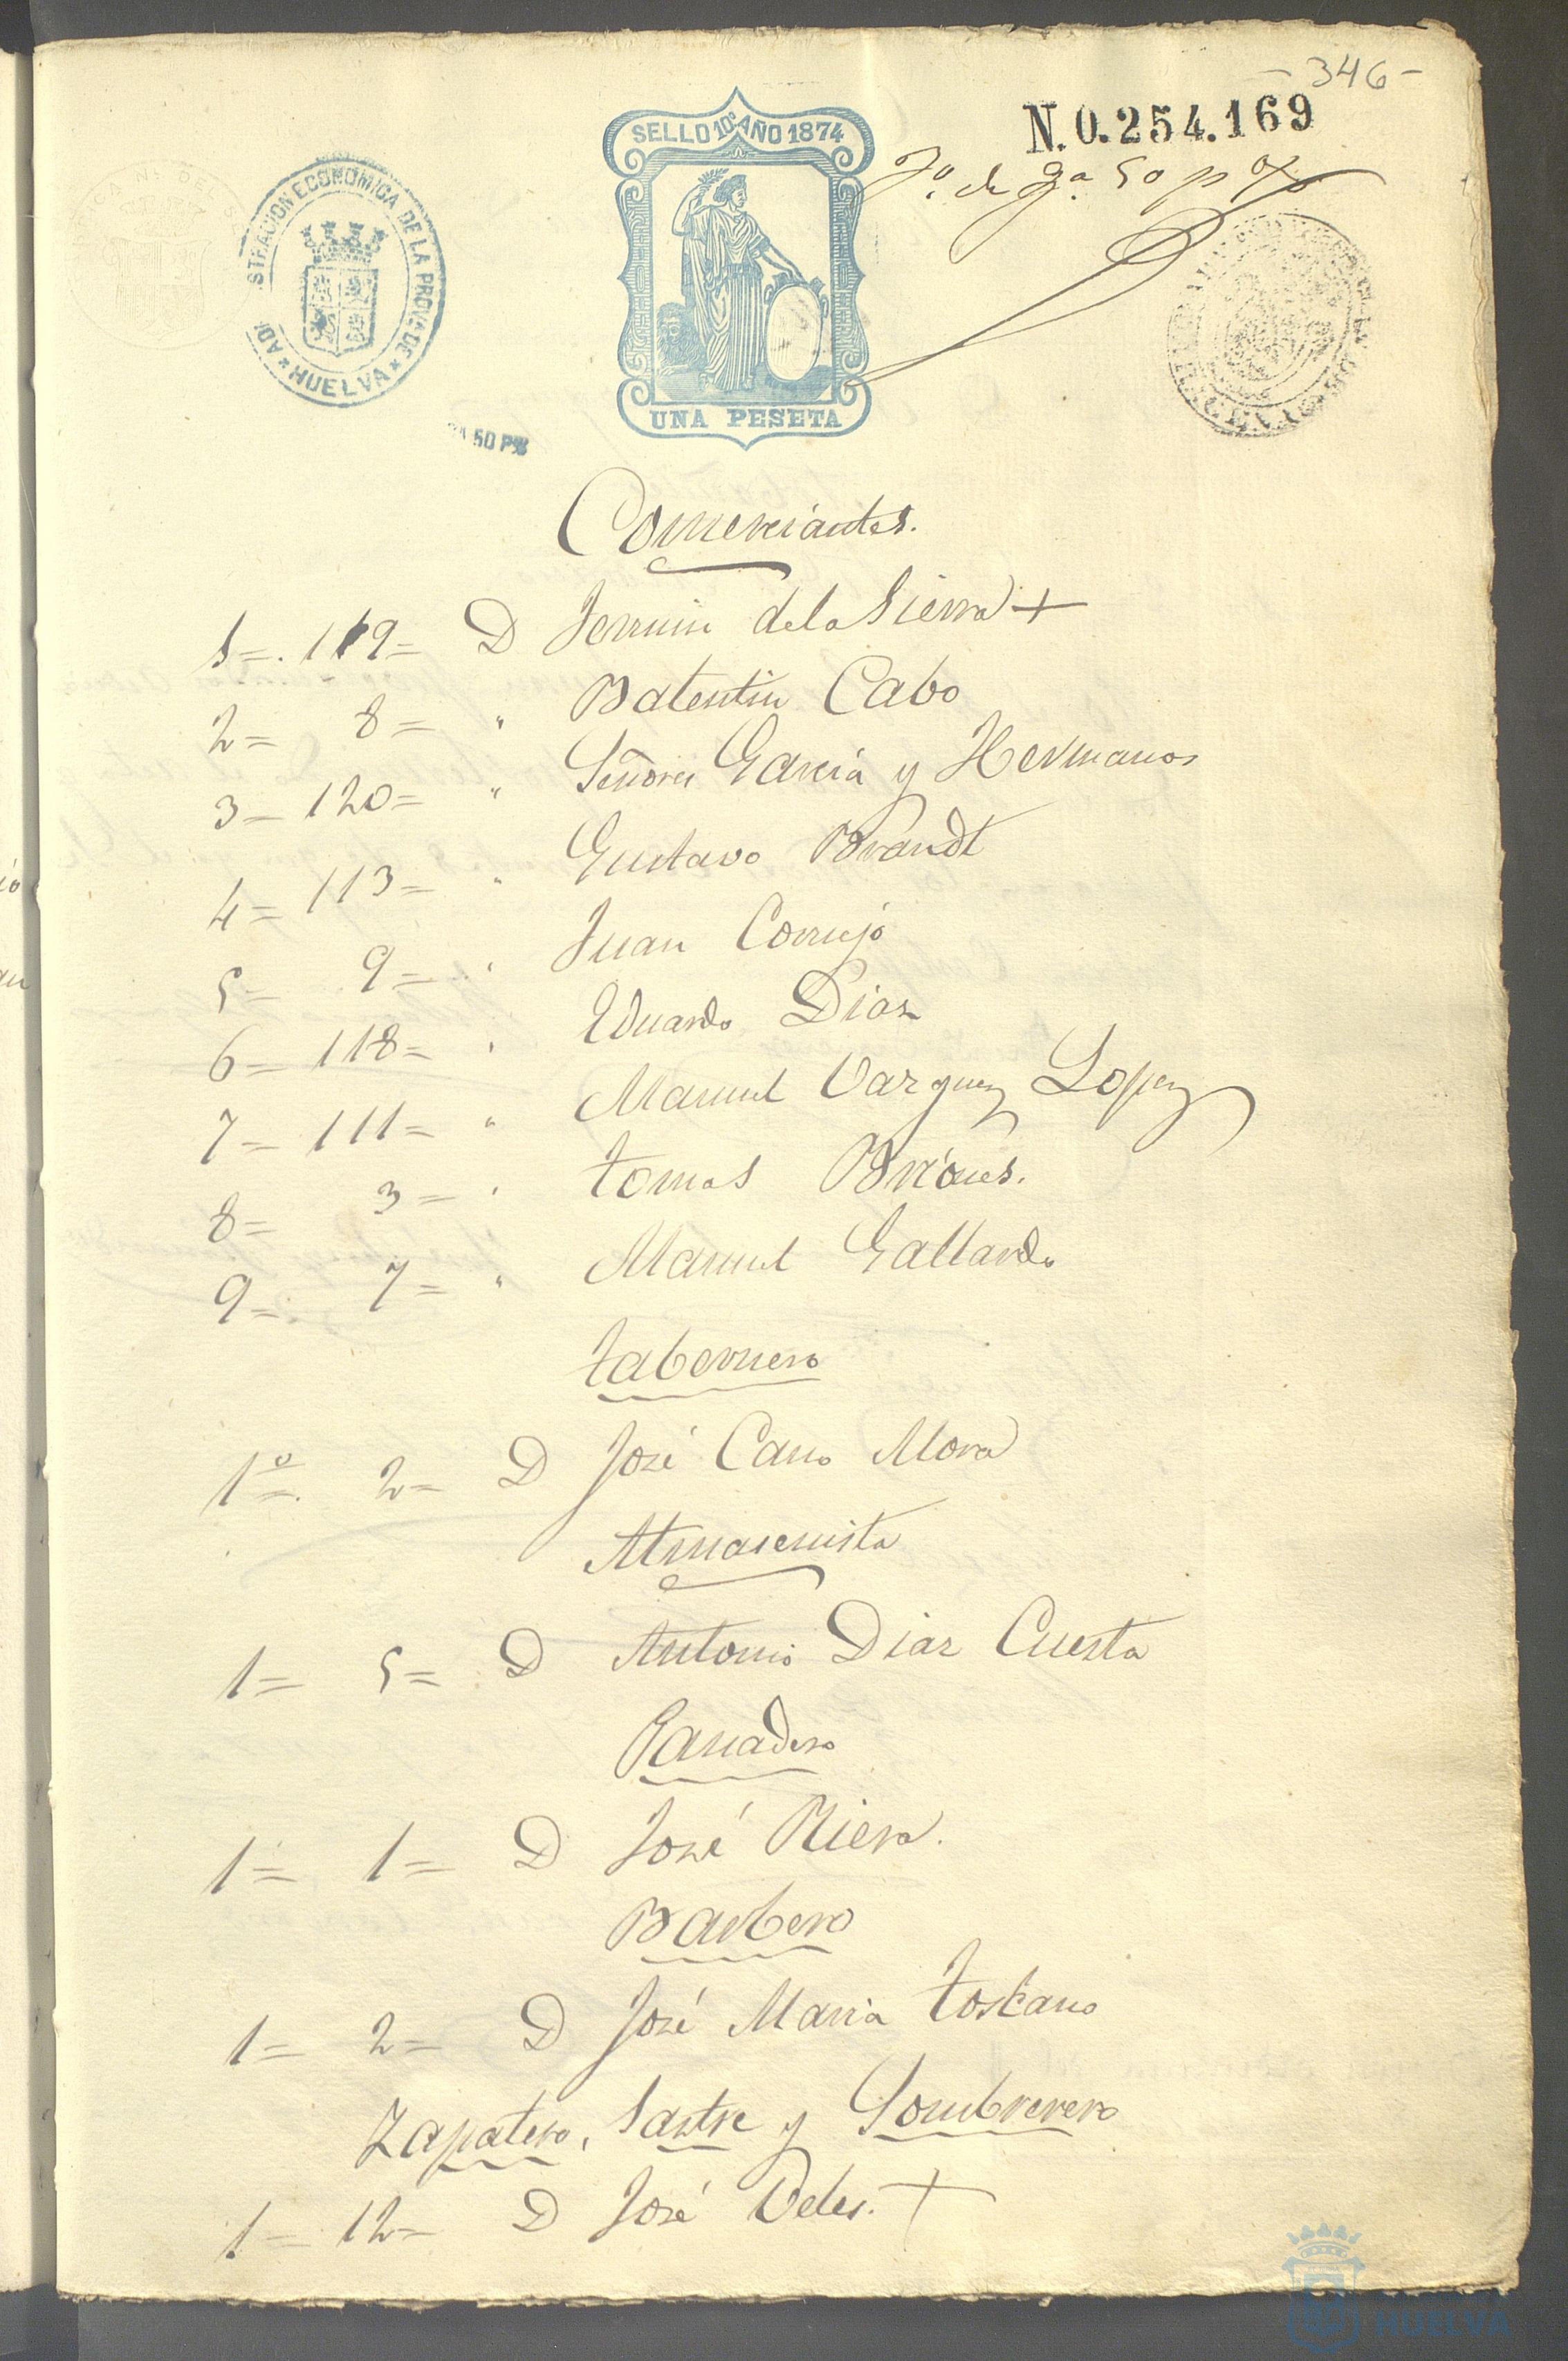 - 346 -
N. 0.254.169
SELLO 10º AÑO 1874
50 p %
ADMI STRACION ECONOMICA DE LA PROVA DE
* HUELVA *
UNA PESETA
50 P%
Comerciantes.
1=. 119= D Fermin de la Sierra +
2= 8= " Balentin Cabo
3= 120= " Señores Garcia y Hermanos
4= 113= " Gustavo Brandt
5= 9= " Juan Cornejo
6= 118= " Eduardo Dias
7= 111= " Manuel Vazquez Lopez
8= 3= " tomas Briones.
9= 7= " Manuel Gallardo
tabernero
1º=. 2= D José Cano Mora
Almacenista
1= 5= D Antonio Diaz Cuesta
Panadero
1= 1= D José Riera.
Barbero
1= 2= D José Maria toscano
Zapatero, Sastre y Sombrerero
1= 12= D José Veles. +
HUELVA